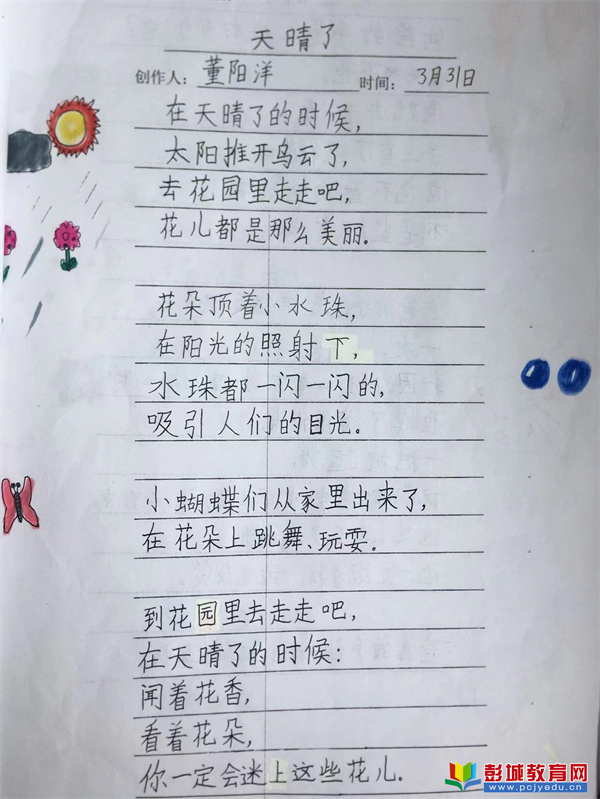 天晴了
创作人： 董阳洋 时间： 3月31日
在天晴了的时候，
太阳推开乌云了，
去花园里走走吧，
花儿都是那么美丽.
花朵顶着小水珠，
在阳光的照射下，
水珠都一闪一闪的，
吸引人们的目光.
小蝴蝶们从家里出来了，
在花朵上跳舞、玩耍.
到花园里去走走吧，
在天晴了的时候：
闻着花香，
看着花朵，
你一定会迷上这些花儿.
彭城教育网
www.pcjyedu.cn